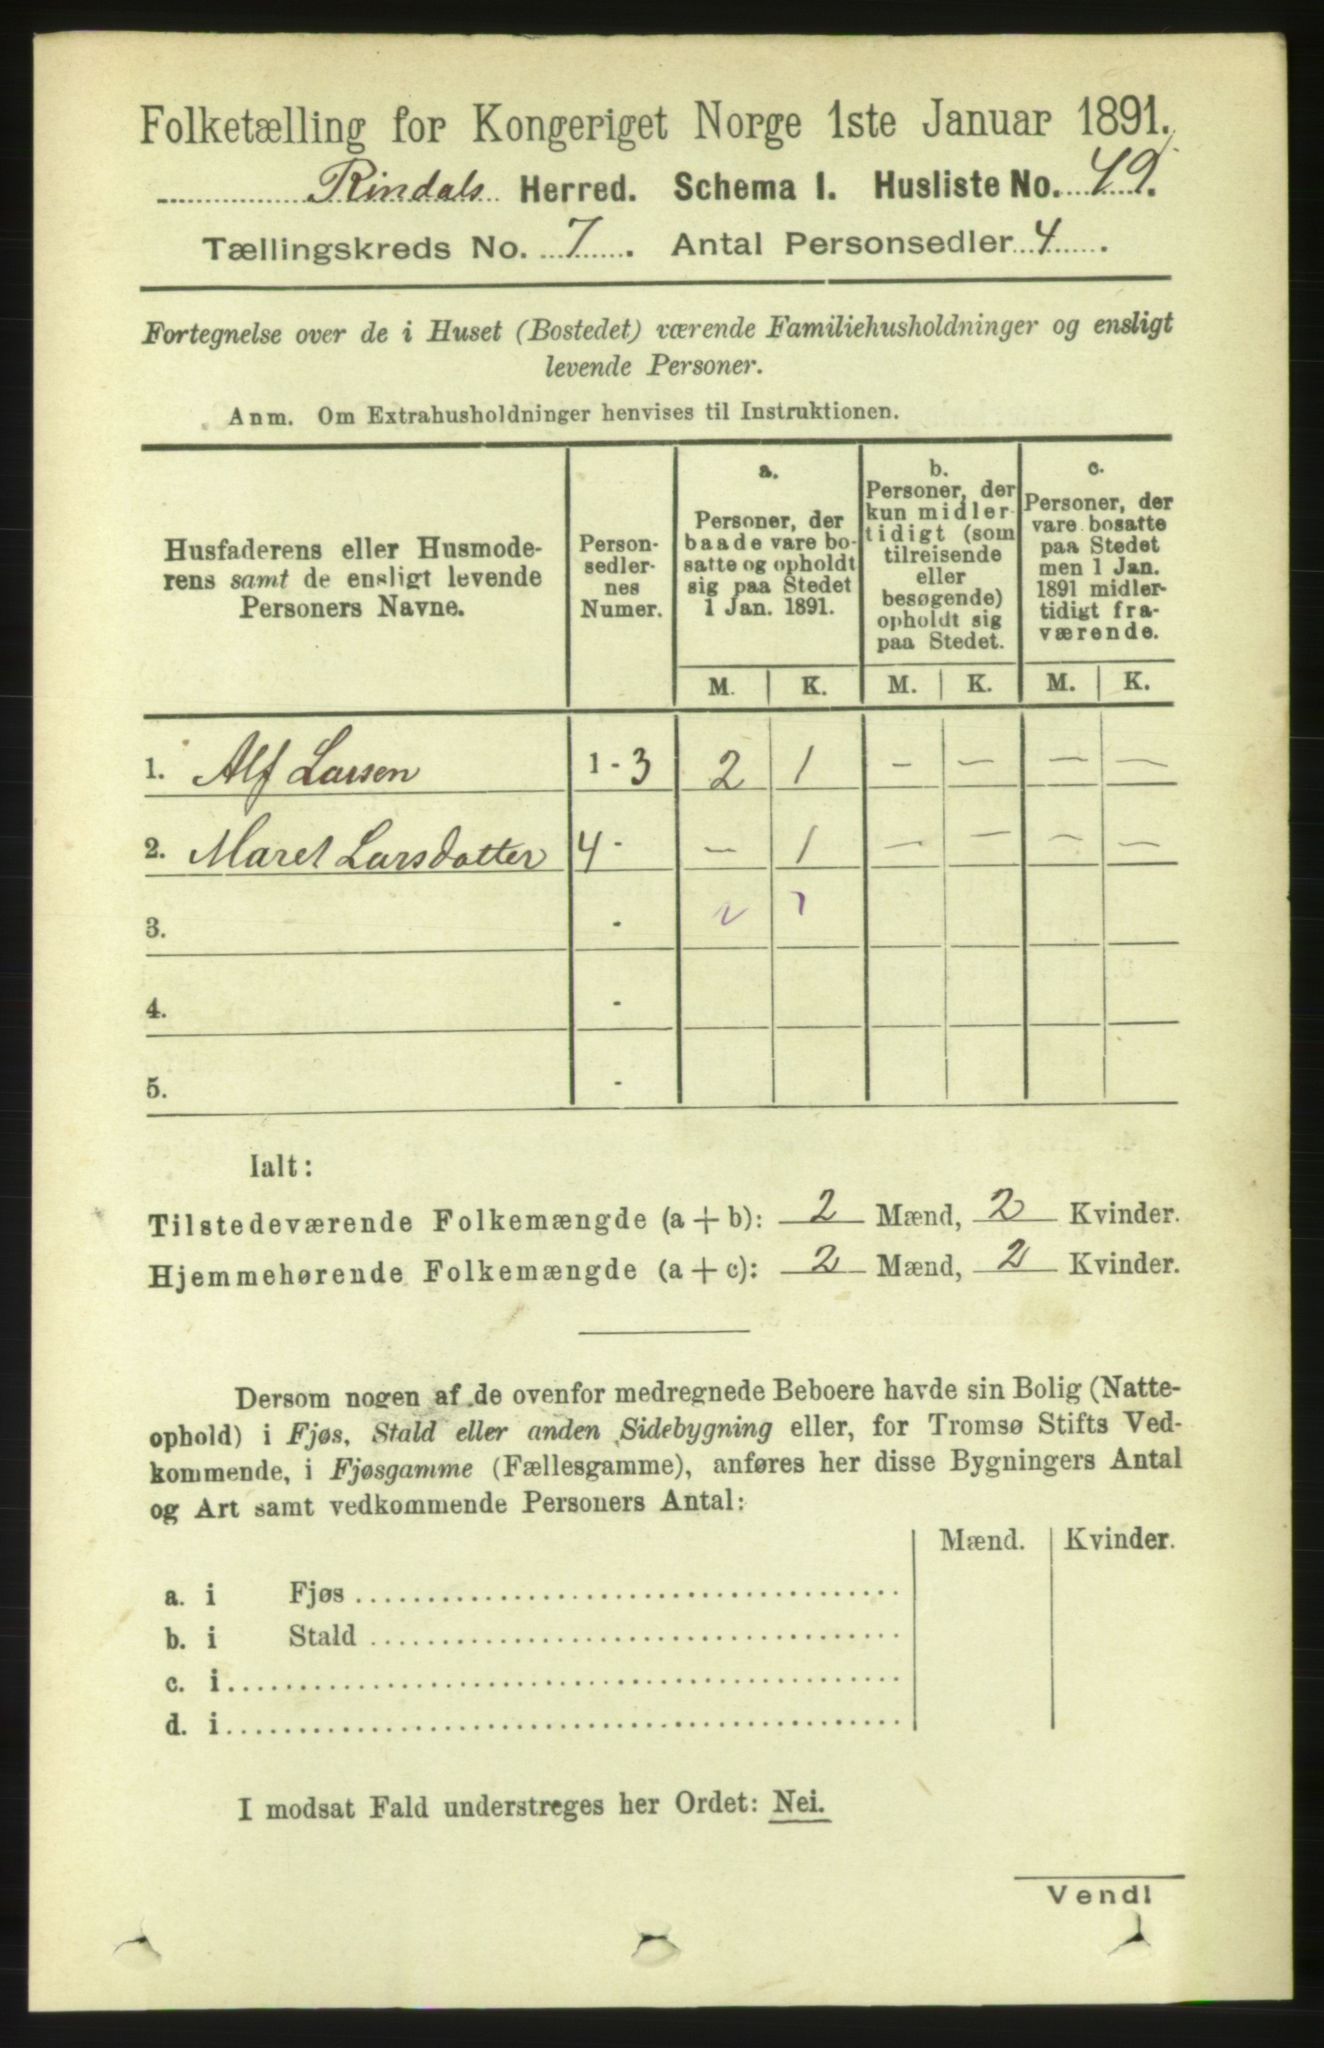 Folketælling for Kongeriget Norge 1ste Januar 1891.
Rindals Herred. Schema 1. Husliste No. 49.
Tællingskreds No. 7. Antal Personsedler 4.
Fortegnelse over de i Huset (Bostedet) værende Familiehusholdninger og ensligt
levende Personer.
Anm. Om Extrahusholdninger henvises til Instruktionen.
Husfaderens eller Husmode-
rens samt de ensligt levende
Personers Navne.
Person-
sedler-
nes
Numer.
a.
Personer, der
baade vare bo-
satte og opholdt
sig paa Stedet
1 Jan. 1891.
b.
Personer, der
kun midler-
tidigt (som
tilreisende
eller
besøgende)
opholdt sig
paa Stedet.
c.
Personer, der
vare bosatte
paa Stedet
men 1 Jan.
1891 midler-
tidigt fra-
værende.
M. K. M. K. M. K.
1. Alf Larsen 1 - 3 2 1 — — — —
2. Maret Larsdatter 4 - — 1 — — — —
3. -
4. -
5. -
Ialt:
Tilstedeværende Folkemængde (a + b): 2 Mænd, 2 Kvinder.
Hjemmehørende Folkemængde (a + c): 2 Mænd, 2 Kvinder.
Dersom nogen af de ovenfor medregnede Beboere havde sin Bolig (Natte-
ophold) i Fjøs, Stald eller anden Sidebygning eller, for Tromsø Stifts Ved-
kommende, i Fjøsgamme (Fællesgamme), anføres her disse Bygningers Antal
og Art samt vedkommende Personers Antal:
Mænd. Kvinder.
a. i Fjøs
b. i Stald
c. i
d. i
I modsat Fald understreges her Ordet: Nei.
Vend!